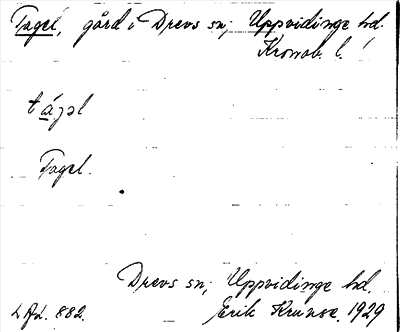 Tagel, gård i Drevs sn; Uppvidinge hd.
Kronob. l.
tágəl
Tagel.
Drevs sn; Uppvidinge hd.
Erik Krunse 1929